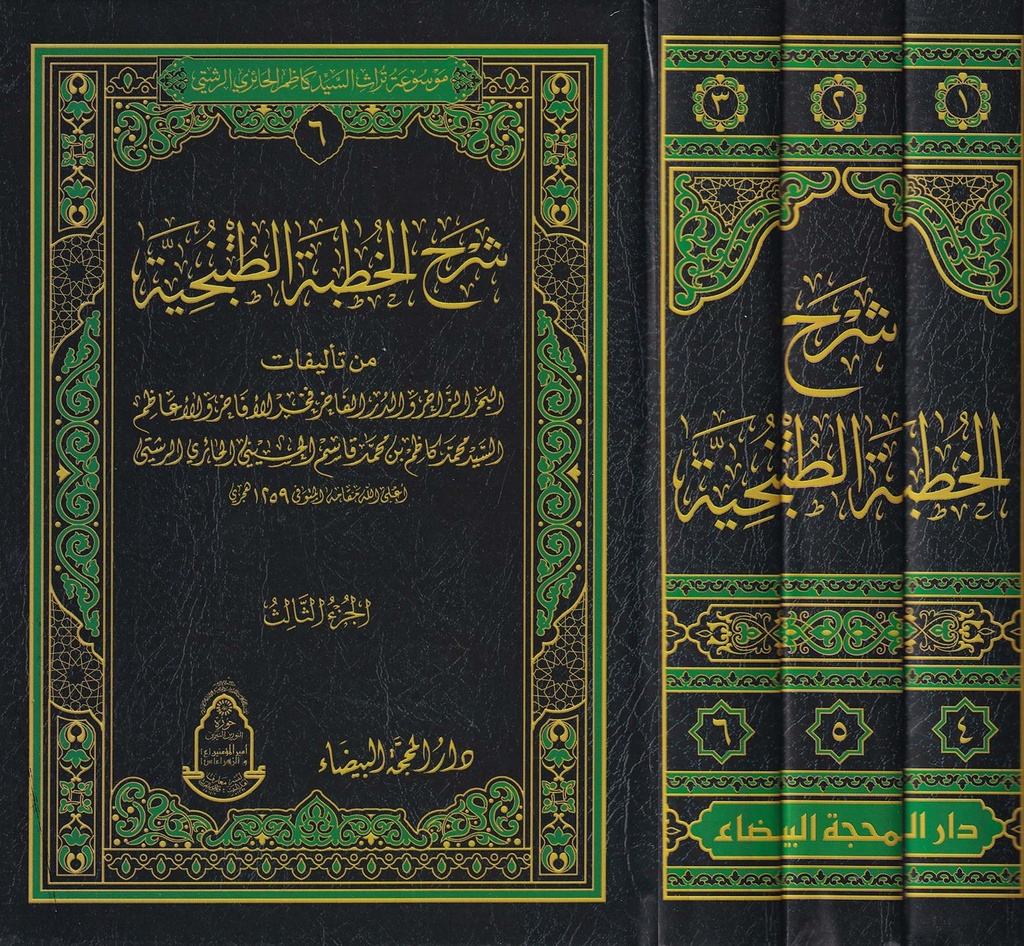 موسوعة تراث السيد كاظم الحائري الرشتي
٦
شَرْحُ الخُطبَةِ الطُتُنْجِيَّة
من تأليفات
البحر الزاخر والدر الفاخر فخر الأفاخر والأعاظم
السيد محمد كاظم بن محمد قاسم الحسيني الحائري الرشتي
أعلى الله مقامه المتوفى ١٢٥٩ هجري
الجُزءُ الثَّالِثُ
حوزة
النورين النيرين
أمير المؤمنين (ع)
والزهراء (س)
دار المحجة البيضاء
١
٢
٣
شَرْحُ
الخُطبَةِ الطُتُنْجِيَّة
٤
٥
٦
دار المحجة البيضاء